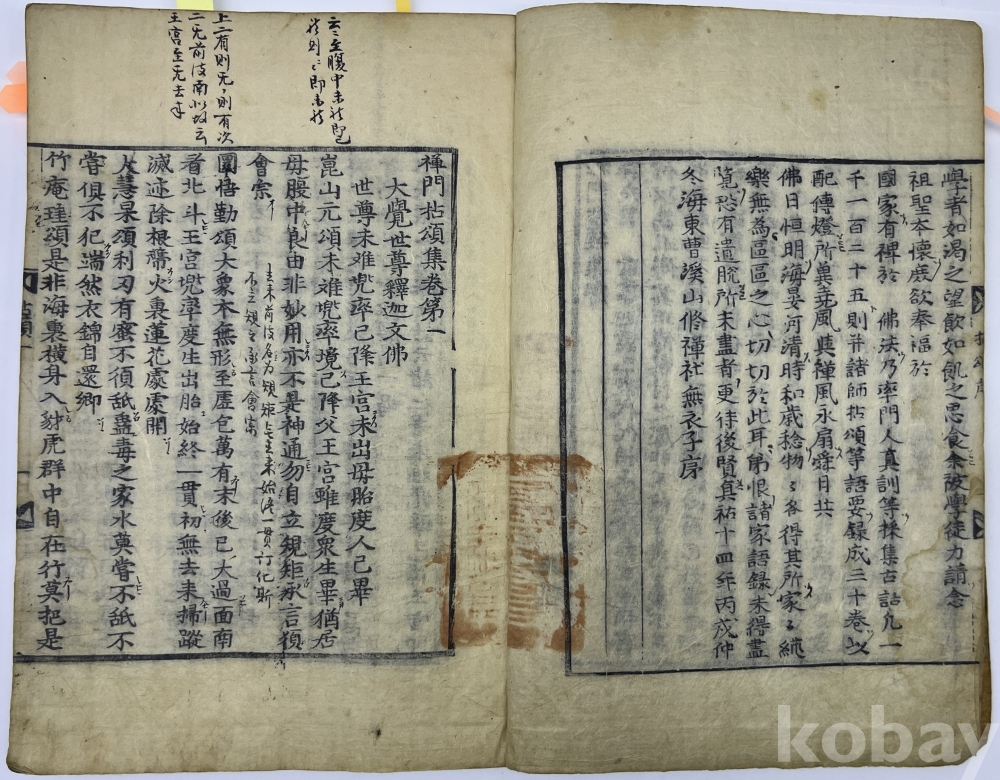 學者如渴之望飮如飢之思食余被學徒力請念
祖聖本懷庶欲奉福於
國家有裨於 佛法乃率門人真訓等採集古話凡一
千一百二十五則幷諸師拈頌等語要錄成三十卷以
配傳燈所冀堯風與禪風永扇舜日共
佛日恒明海晏河清時和歲稔物〻各得其所家〻純
樂無為區區之心切切於此耳第恨諸家語錄未得盡
覽恐有遺脫所未盡者更待後賢真祐十四年丙戌仲
冬海東曹溪山修禪社無衣子序
禪門拈頌集卷第一
大覺世尊釋迦文佛
世尊未離兜率已降王宮未出母胎度人已畢
崑山元頌未離兜率境已降父王宮雖度衆生畢猶居
母腹中良由非妙用亦不是神通勿自立規矩承言須
會宗
圜悟勤頌大象本無形至虛包萬有末後已大過面南
看北斗王宮兜率度生出胎始終一貫初無去來掃蹤
滅迹除根蔕火裏蓮花處處開
大慧杲頌利刃有蜜不須舐蠱毒之家水莫嘗不舐不
嘗俱不犯端然衣錦自還鄕
竹庵珪頌是非海裏橫身入豺虎群中自在行莫把是
上二有則无〻則有次
二无前後南北故云
王宮至无去來
kobay